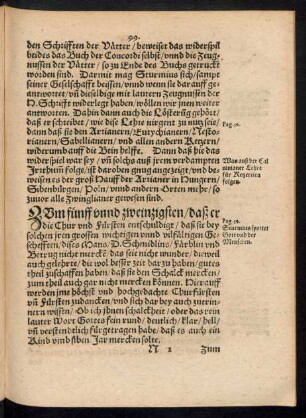 99.
den Schrifften der Vätter / beweiset das widerspil
beides das Buch der Concordi selbst / vnnd die Zeug-
nussen der Vätter / so zu Ende des Buchs getruckt
worden sind. Darmit mag Sturmius sich / sampt
seiner Gesellschafft heissen / vnnd wenn sie darauff ge-
antwortet / vñ dieselbige mit lautern Zeugnussen der
H. Schrifft widerlegt haben / wöllen wir jnen weiter
antworten. Dahin dann auch die Lösterũg gehört /
daß er schreibet / wie diese Lehre nirgent zu dienstlich /
dann daß sie den Artianern / Eutychianern / Nesto-
rianern / Sabellianern / vnd allen andern Ketzern /
widerumb auff die Bein helffe. Dann daß diß das
widerspiel war sey / vñ solchs auß jrem verdampten
Irrthum folge / ist daroben gnug angezeigt / vnd be-
weisens es der groß Hauff der Arrianer in Hungern /
Sibenbürgen / Poln / vnnd andern Orten mehr / so
zuuor alle Zwinglianer gewesen sind.
Pag. 31.
Was auß der Cal
uinianer Lehre
für Ketzereien
folgen.
ZVm fünff vnnd zweinzigsten / daß er
die Chur vnd Fürsten entschuldigt / daß sie bey
solchen jren grossen wichtigen vnd vilfältigen Ge-
schefften / dises Mans / D. Schmidlins / Färblin vnd
Betrug nicht mercke / das doch andere / die nicht wenig
auch gelehrte / die vol besser zeit dar zu haben / guten
theil zuschaffen haben / daß sie den Schalck mercken /
zum theil auch gar nicht mercken können. Hierauff
werden jene höchst vnd hochgedachte Churfürsten
vñ Fürsten zudancken / vnd sich dar bey auch zuerin-
nern wissen / Ob ich jhnen schalcklich / oder das rein
lauter Wort Gottes fein rund / deutlich / klar / hell /
vñ verstendtlich fürgetragen habe / daß es auch ein
Kind vmb siben Jar mercken solte.
Pag. 32.
Sturmius spottet
Gott vnd der
Menschen.
N 2
Zum